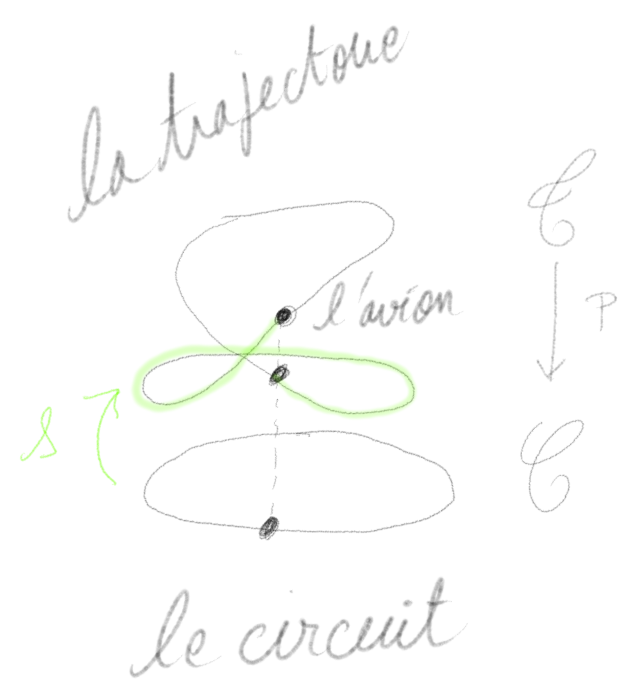 la trajectoire
𝒞
l'avion
P
s
𝒞
le circuit